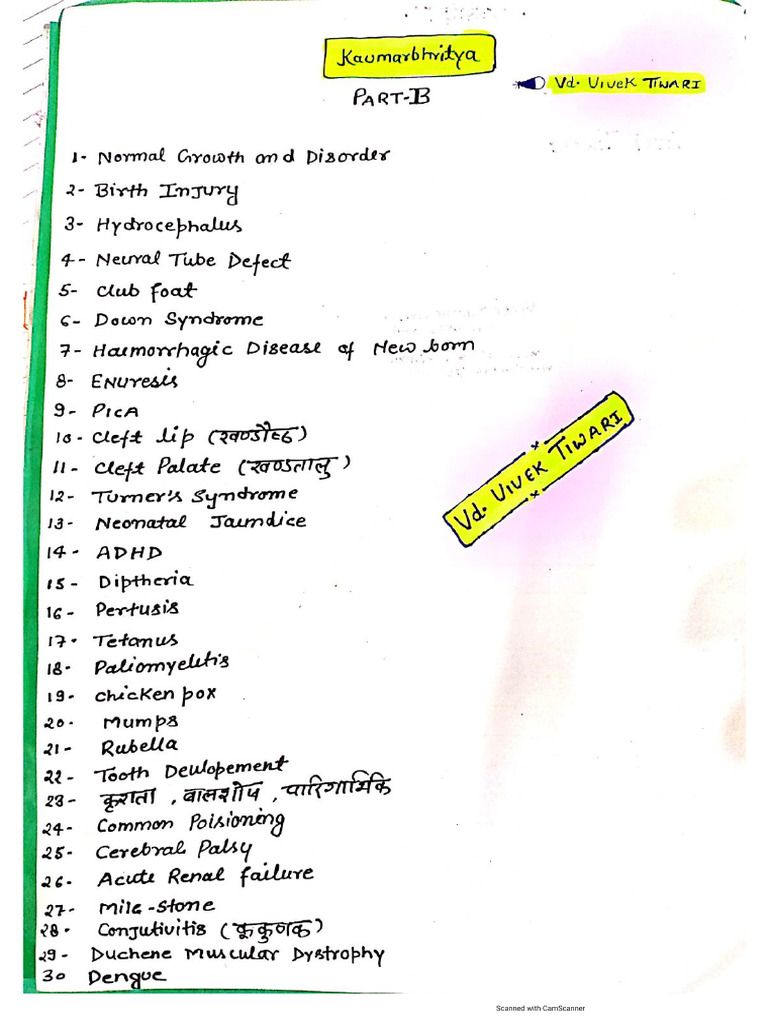 Kaumarbhritya
PART-B
Vd. Vivek Tiwari
1- Normal Growth and Disorder
2- Birth Injury
3- Hydrocephalus
4- Neural Tube Defect
5- Club foat
6- Down Syndrome
7- Haemorrhagic Disease of New born
8- Enuresis
9- PICA
10- Cleft lip (खण्डौष्ठ)
11- Cleft Palate (खण्डतालु)
12- Turner's Syndrome
13- Neonatal Jaundice
14- ADHD
15- Diptheria
16- Pertusis
17- Tetanus
18- Paliomyelitis
19- Chicken pox
20- Mumps
21- Rubella
22- Tooth Devlopement
23- कृशता, बालशोष, पारिगार्भिक
24- Common Poisioning
25- Cerebral Palsy
26- Acute Renal failure
27- Mile-stone
28- Conjutivitis (कूकुणक)
29- Duchene Muscular Dystrophy
30 Dengue
Vd. VIVEK TIWARI
Scanned with CamScanner